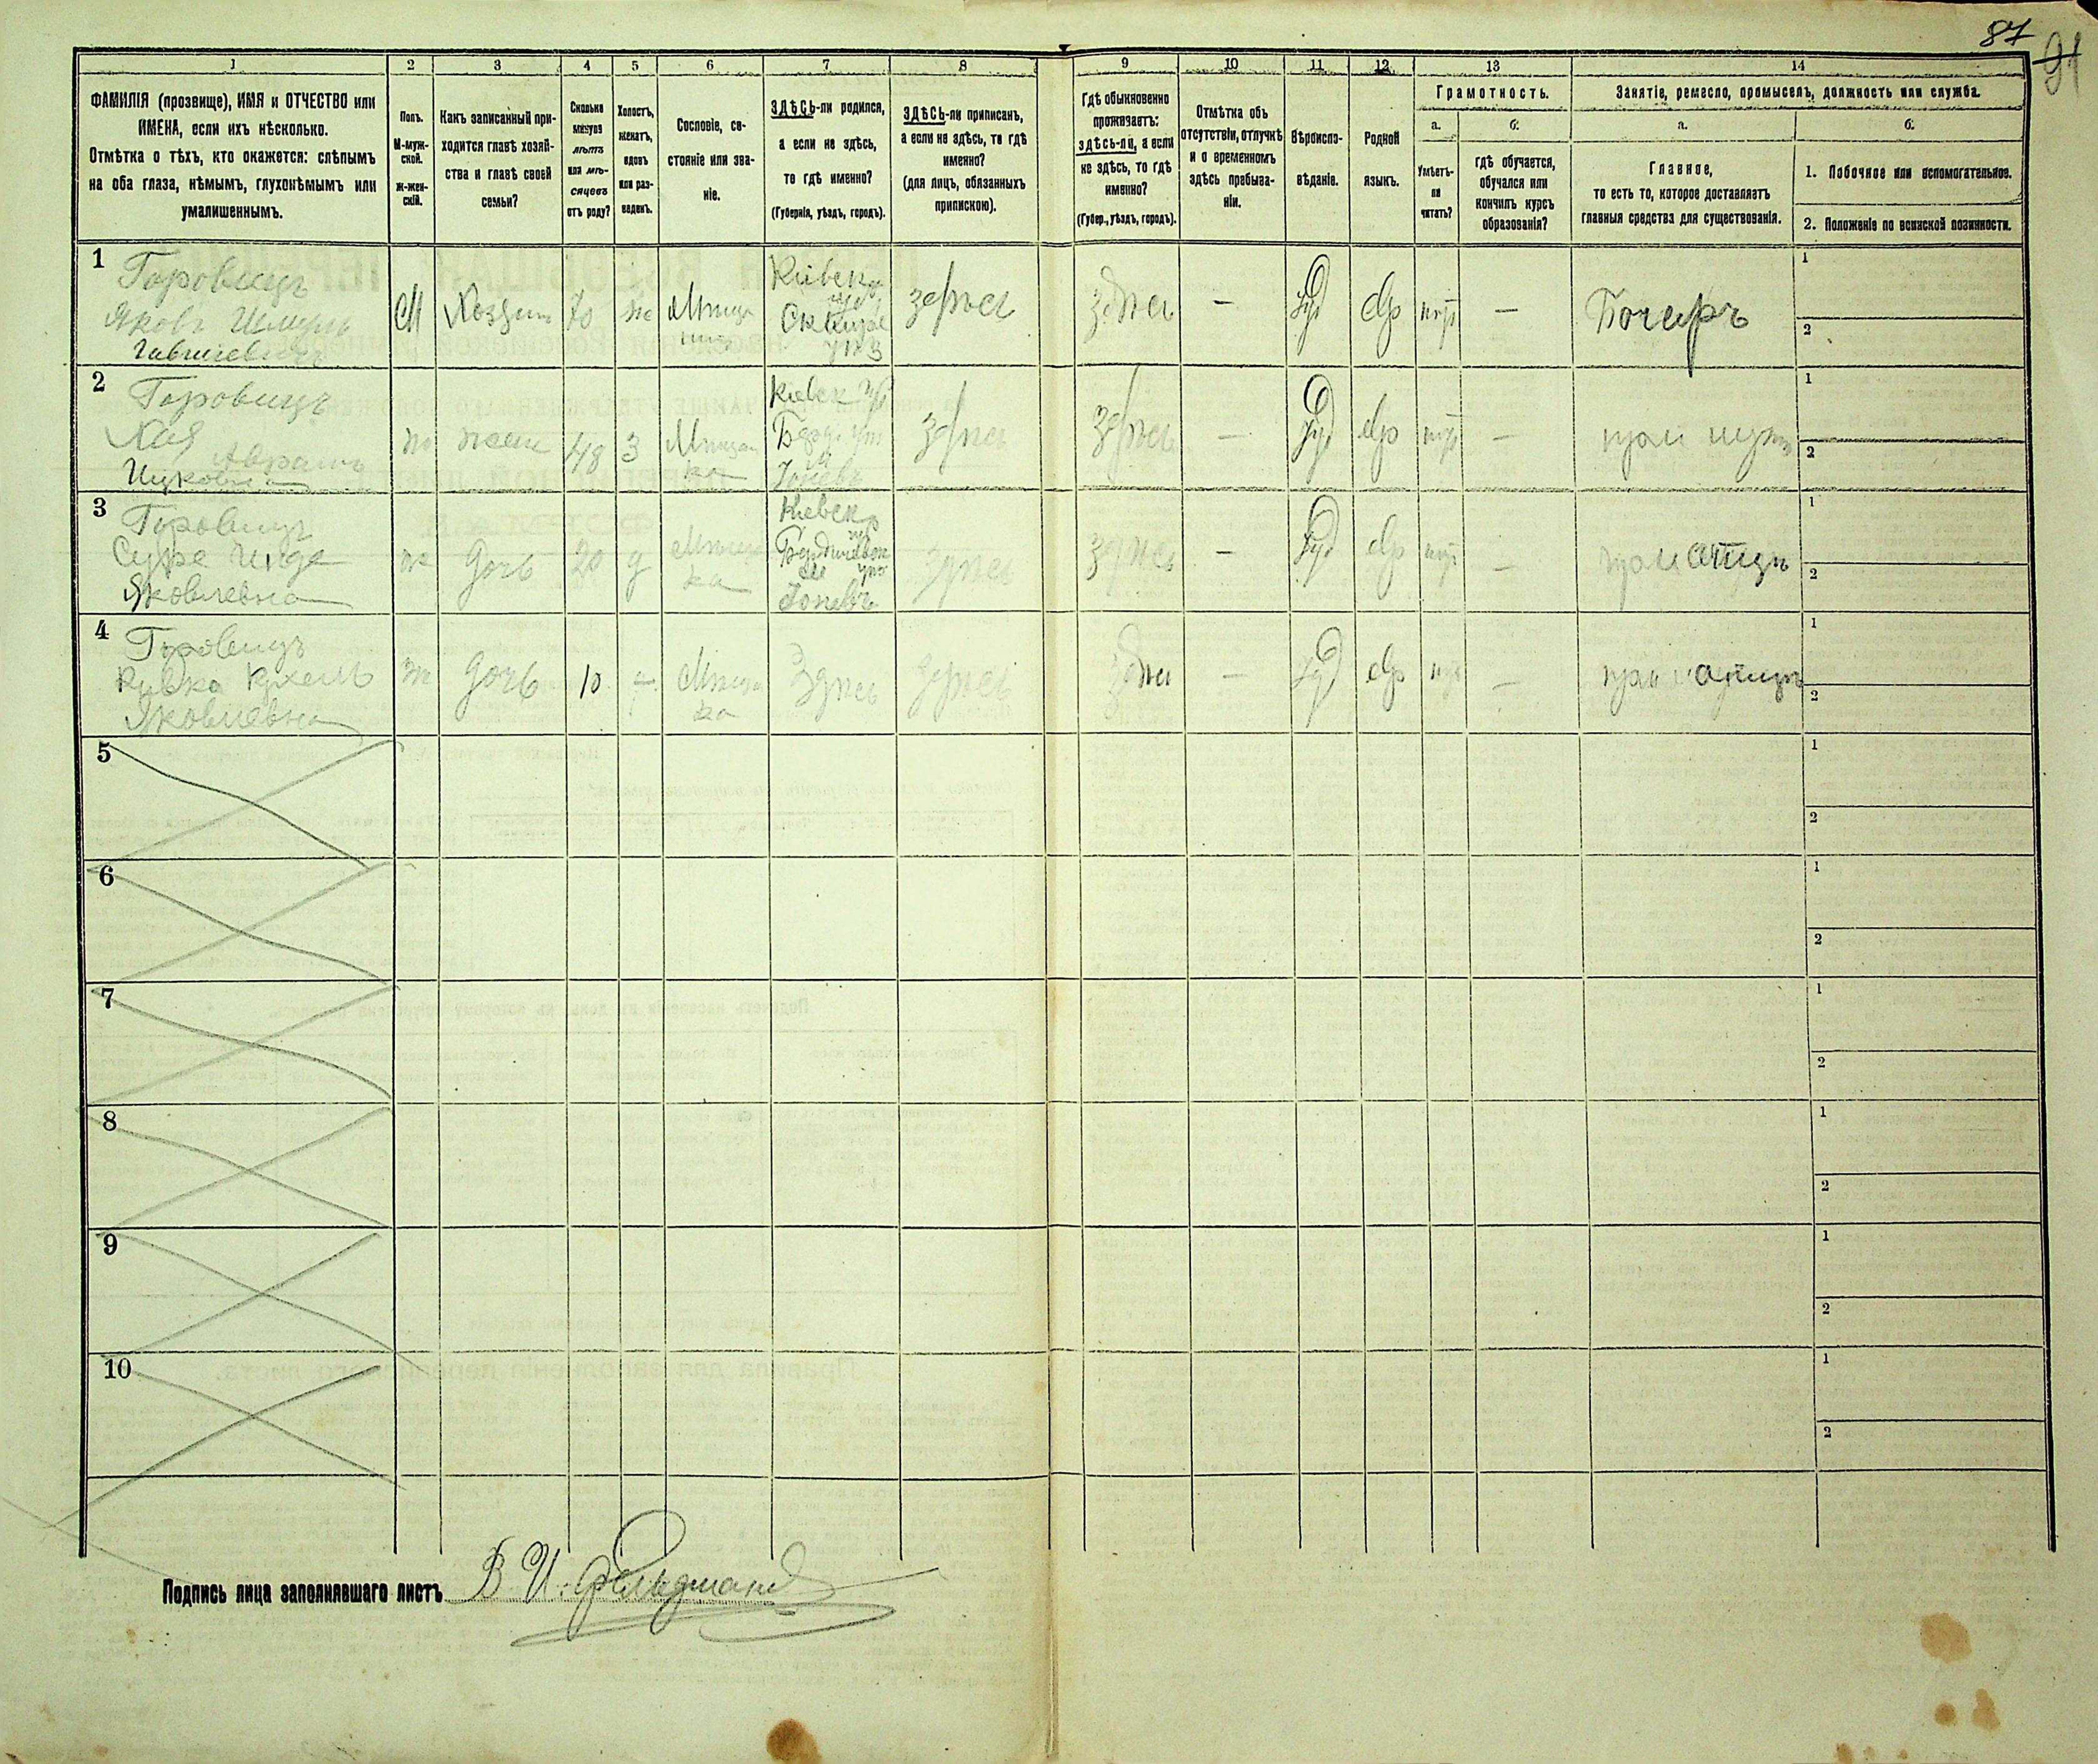 87
91
1
2
3
4
5
6
7
8
9
10
11
12
13
14
ФАМИЛІЯ (прозвище), ИМЯ и ОТЧЕСТВО или
ИМЕНА, если ихъ нѣсколько.
Отмѣтка о тѣхъ, кто окажется: слѣпымъ
на оба глаза, нѣмымъ, глухонѣмымъ или
умалишеннымъ.
Полъ.
М-муж-
ской.
ж-жен-
скій.
Какъ записанный при-
ходится главѣ хозяй-
ства и главѣ своей
семьи?
Сколько
минуло
лѣтъ
или мѣ-
сяцевъ
отъ роду?
Холостъ,
женатъ,
вдовъ
или раз-
веденъ.
Сословіе, со-
стояніе или зва-
ніе.
ЗДѢСЬ-ли родился,
а если не здѣсь,
то гдѣ именно?
(Губернія, уѣздъ, городъ).
ЗДѢСЬ-ли приписанъ,
а если не здѣсь, то гдѣ
именно?
(для лицъ, обязанныхъ
припискою).
Гдѣ обыкновенно
проживаетъ:
здѣсь-ли, а если
не здѣсь, то гдѣ
именно?
(Губер., уѣздъ, городъ).
Отмѣтка объ
отсутствіи, отлучкѣ
и о временномъ
здѣсь пребыва-
ніи.
Вѣроиспо-
вѣданіе.
Родной
языкъ.
Грамотность.
а.
Умѣетъ-
ли
читать?
б.
гдѣ обучается,
обучался или
кончилъ курсъ
образованія?
Занятіе, ремесло, промыселъ, должность или служба.
а.
Главное,
то есть то, которое доставляетъ
главныя средства для существованія.
б.
1. Побочное или вспомогательное.
2. Положеніе по воинской повинности.
1
Горовицъ
Яковъ Шмуль
М
Хозяин
70
ж
Кіевск
Сквире
здесь
здесь
—
Іуд
Евр
—
Бочаръ
1
2
2
Горовицъ
Хая Аврамъ
Ицковна
ж
жена
48
З
Мѣщан
ка
Кіевск
здесь
здесь
—
Іуд
Евр
—
при мужѣ
1
2
3
Горовицъ
Сура Чиде
Яковлевна
ж
дочь
20
д
Мѣщан
ка
Кіевск
Бердичевск
здесь
здесь
—
Іуд
Евр
—
при отцѣ
1
2
4
Горовицъ
Ривка Рухель
Яковлевна
ж
дочь
10
—
Мѣщан
ка
Здесь
здесь
здесь
—
Іуд
Евр
—
при отцѣ
1
2
5
1
2
6
1
2
7
1
2
8
1
2
9
1
2
10
1
2
Подпись лица заполнявшаго листъ В И. Фельдман